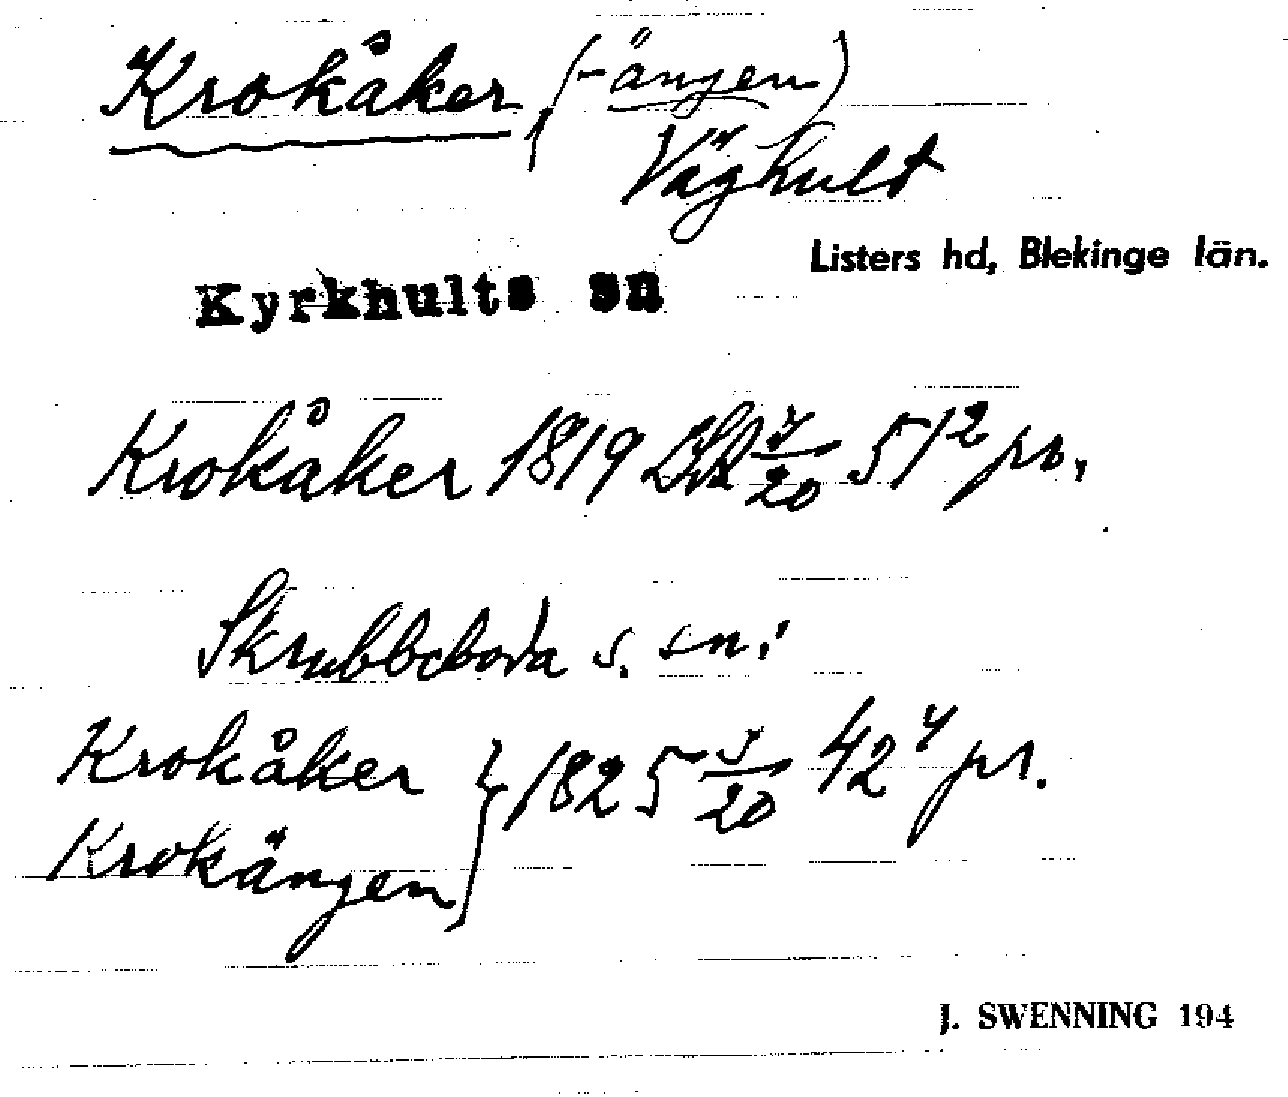 Krokåker, (-ängen)
Väghult
Listers hd, Blekinge län.
Kyrkhults sn
Krokåker 1819 3/20 51² pr.
Skrubbeboda s. sn:
Krokåker } 1825 3/20 42⁴ pr.
Krokängen
J. SWENNING 194